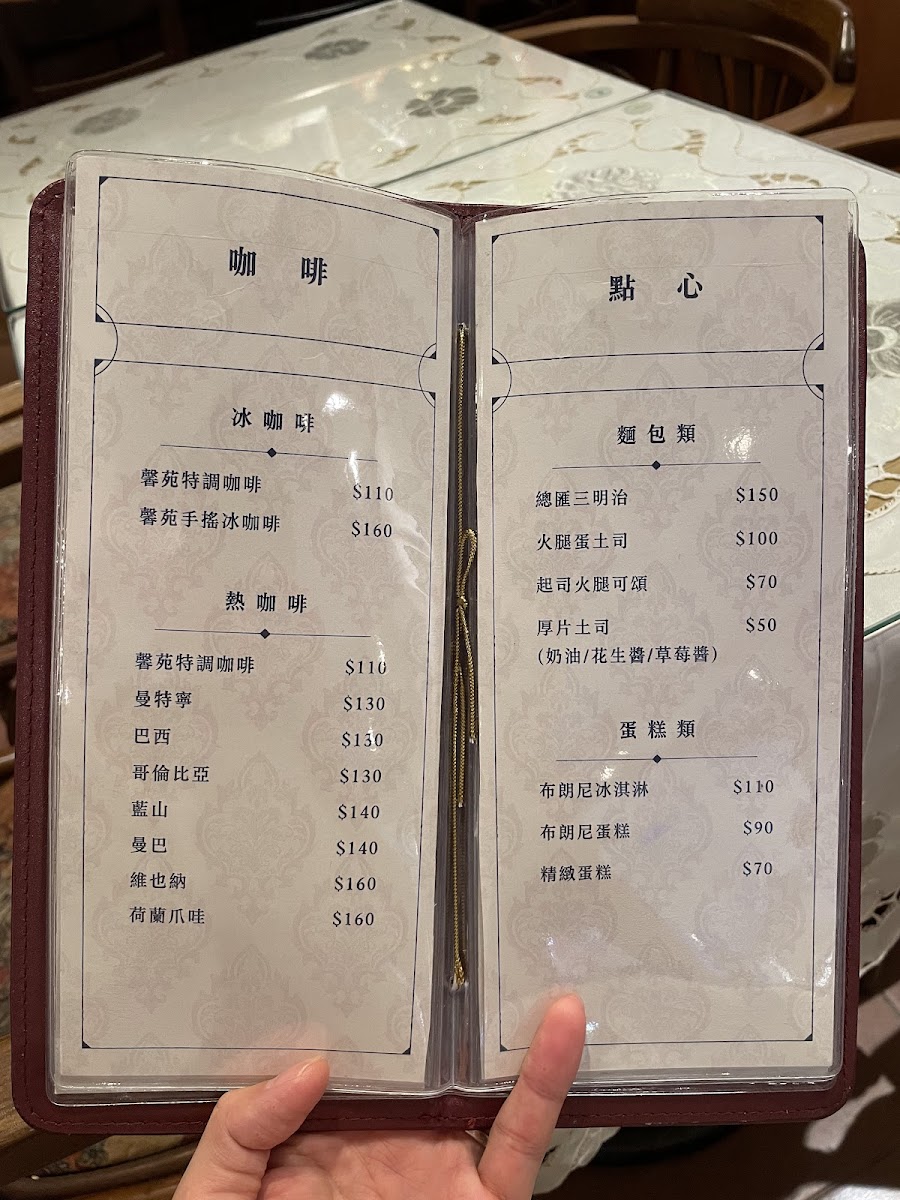 咖 啡
冰咖啡
馨苑特調咖啡 $110
馨苑手搖冰咖啡 $160
熱咖啡
馨苑特調咖啡 $110
曼特寧 $130
巴西 $130
哥倫比亞 $130
藍山 $140
曼巴 $140
維也納 $160
荷蘭爪哇 $160
點 心
麵包類
總匯三明治 $150
火腿蛋土司 $100
起司火腿可頌 $70
厚片土司 $50
(奶油/花生醬/草莓醬)
蛋糕類
布朗尼冰淇淋 $110
布朗尼蛋糕 $90
精緻蛋糕 $70